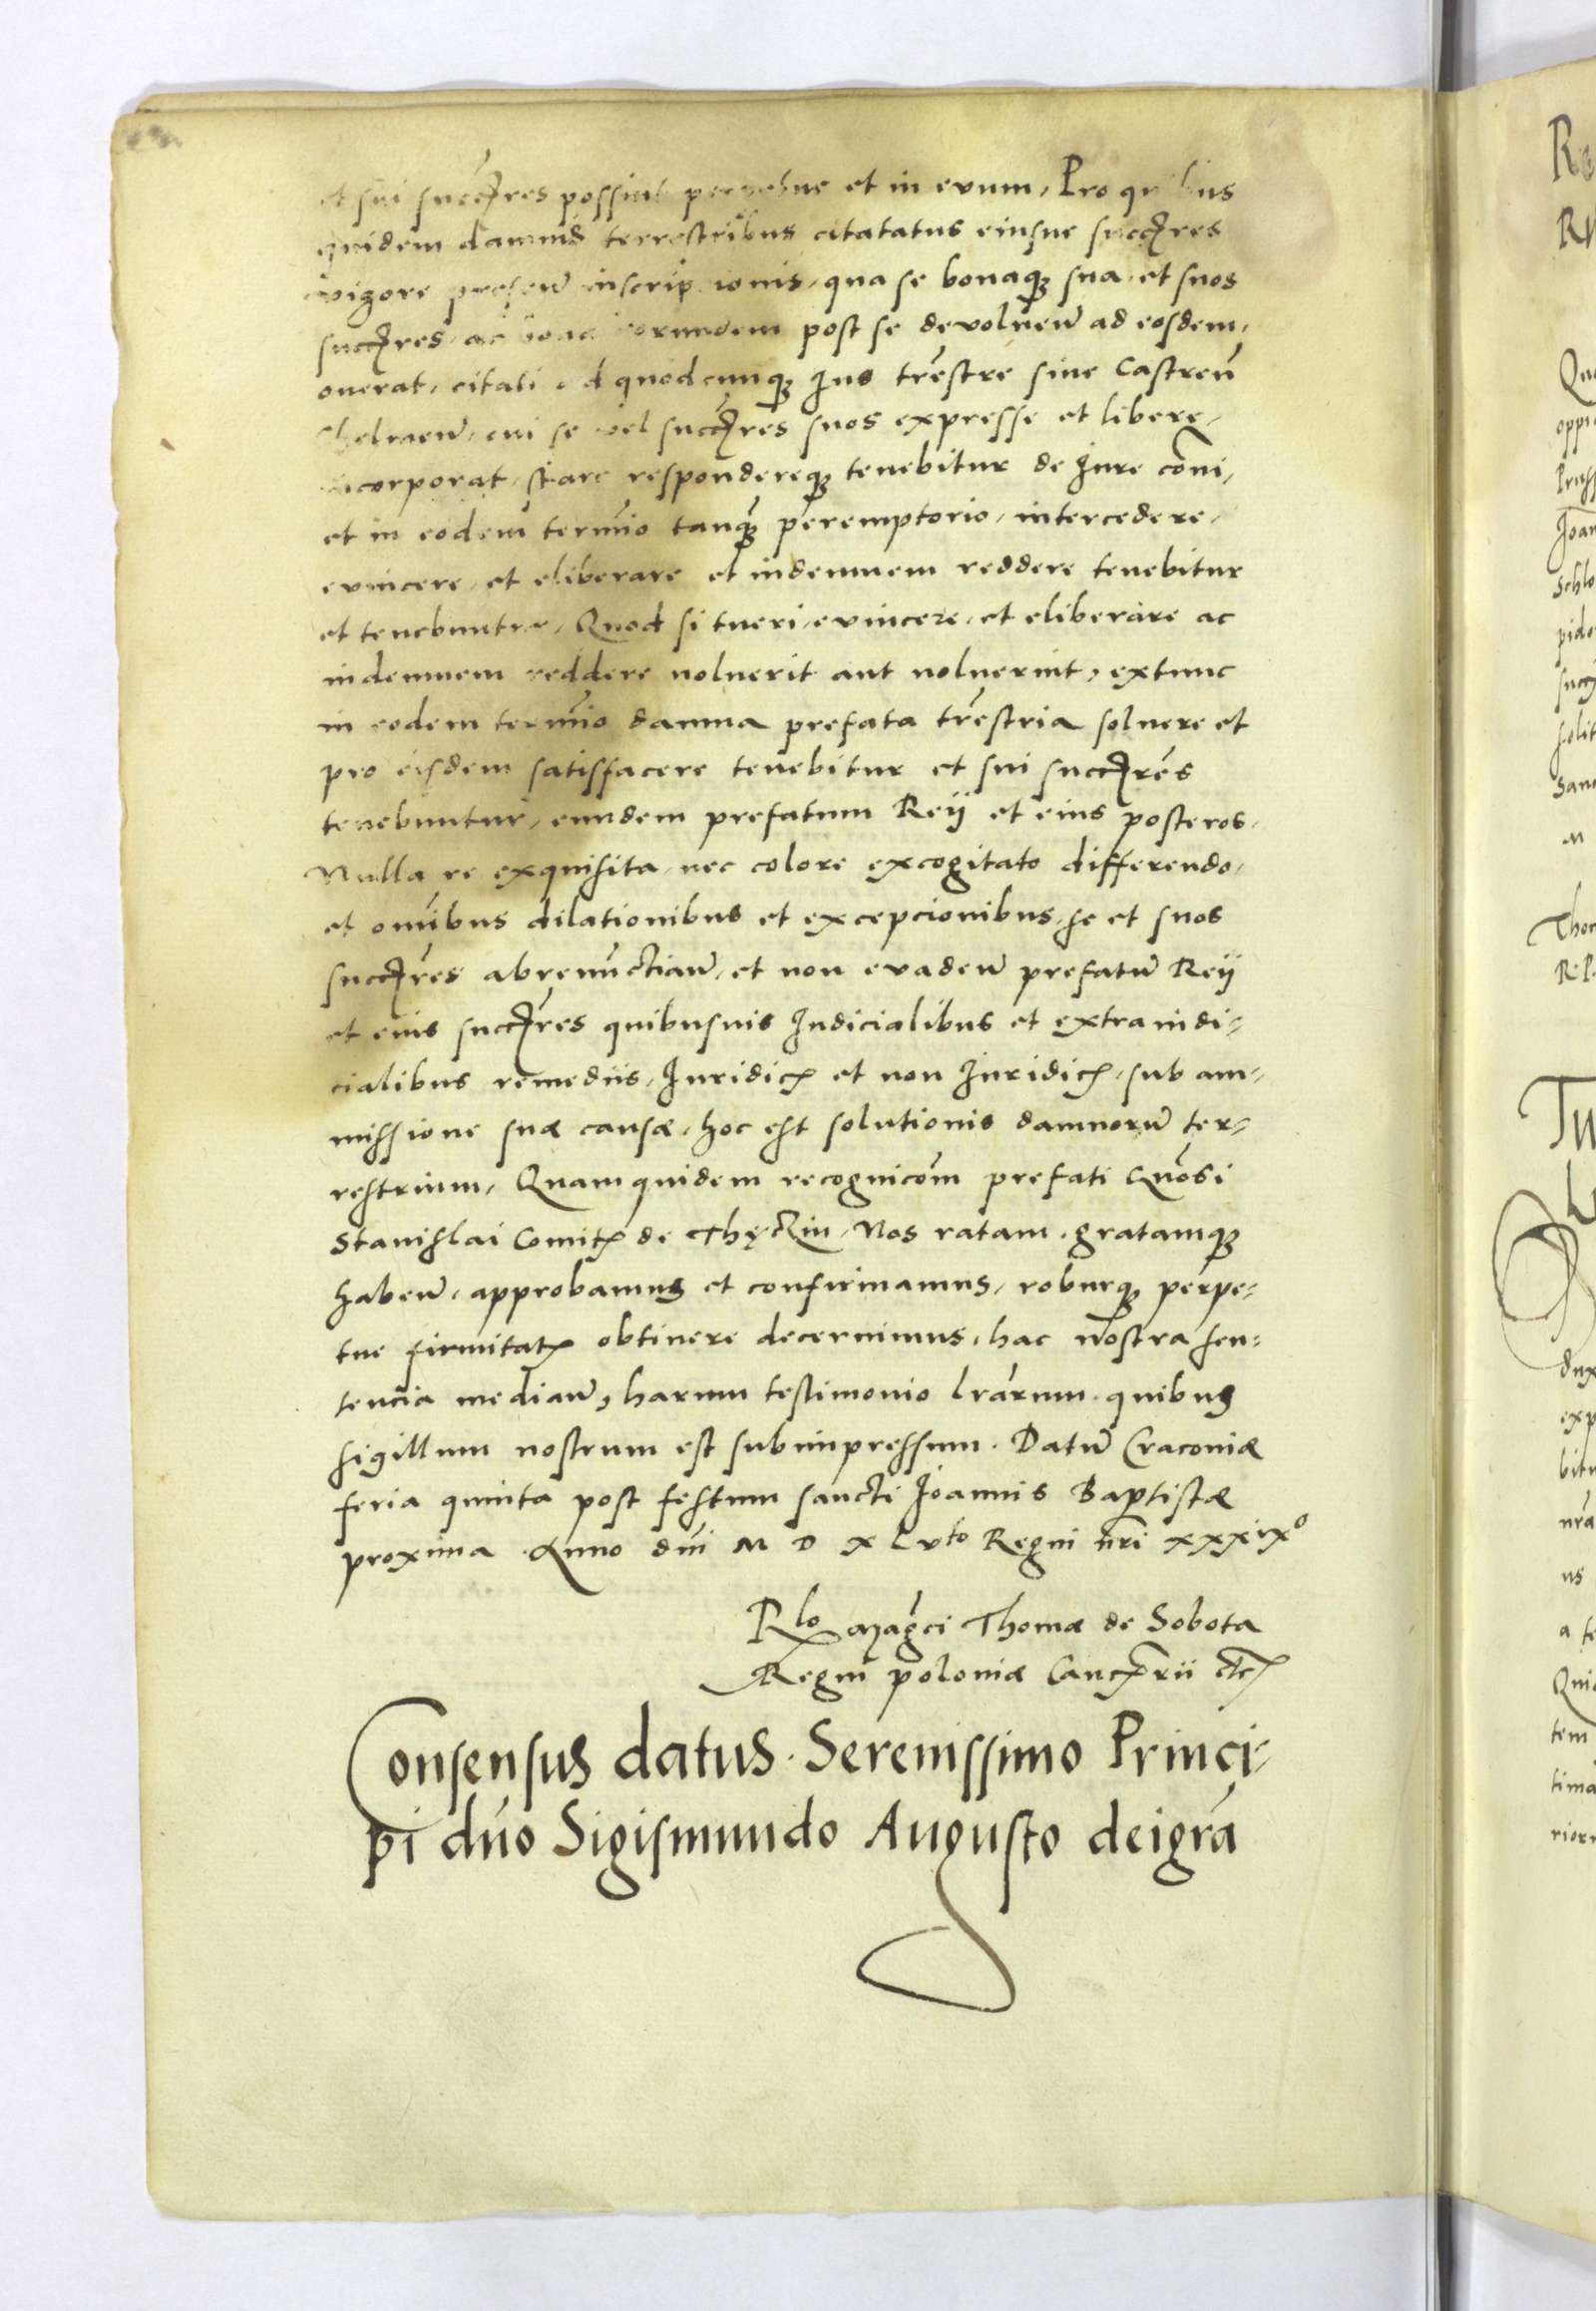 et sui succẽres possint perpetue et in evum, Pro quibus
quidem damnis terrestribus citatatus eiusue succẽres
vigore presen̄ inscriptionis, qua se bonaqȝ sua et suos
succẽres, ac bona eorundem post se devoluen̄ ad eosdem,
onerat, citati ad quodcunqȝ Ius tr̃estre siue Castren̄
Chelmen̄, cui se vel succẽres suos expresse et libere,
incorporat, stare respondereqȝ tenebitur de Iure com̃i,
et in eodem termĩo tanqȝ peremptorio, intercedere,
euincere, et eliberare et indemnem reddere tenebitur
et tenebuntur, Quod si tueri, euincere, et eliberare ac
indemnem reddere noluerit aut noluerint, extunc
in eodem termĩo damna prefata tr̃estria soluere et
pro eisdem satisfacere tenebitur et sui succẽres
tenebuntur, eundem prefatum Reÿ et eius posteros,
Nulla re exquisita, nec colore excogitato differendo,
et om̃ibus dilationibus et excepcionibus, se et suos
succẽres abrenũctian̄, et non evaden̄ prefatū Reÿ
et eius succẽres quibusuis Iudicialibus et extraiudi-
cialibus remediis, Iuridicꝭ et non Iuridicꝭ, sub am-
missione suæ causæ, hoc est solutionis damnorū ter-
restrium, Quamquidem recognicõm prefati Gñosi
Stanislai Comitꝭ de Thęczin, Nos ratam, gratamqȝ
haben̄, approbamus et confirmamus, roburqȝ perpe-
tue firmitatꝭ obtinere decernimus, hac nostra sen-
tencia median̄, harum testimonio lr̃arum, quibus
sigillum nostrum est subimpressum. Datū Cracoviæ
feria quinta post festum sancti Ioannis Baptistæ
proxima Anno dñi M D X L vto Regni nr̃i xxxixo
Rlo Mag̃ci Thomæ de Sobota
Regni poloniæ Canc̃rii etcꝭ
Consensus datus Serenissimo Princi-
pi dño Sigismundo Augusto deigr̃a